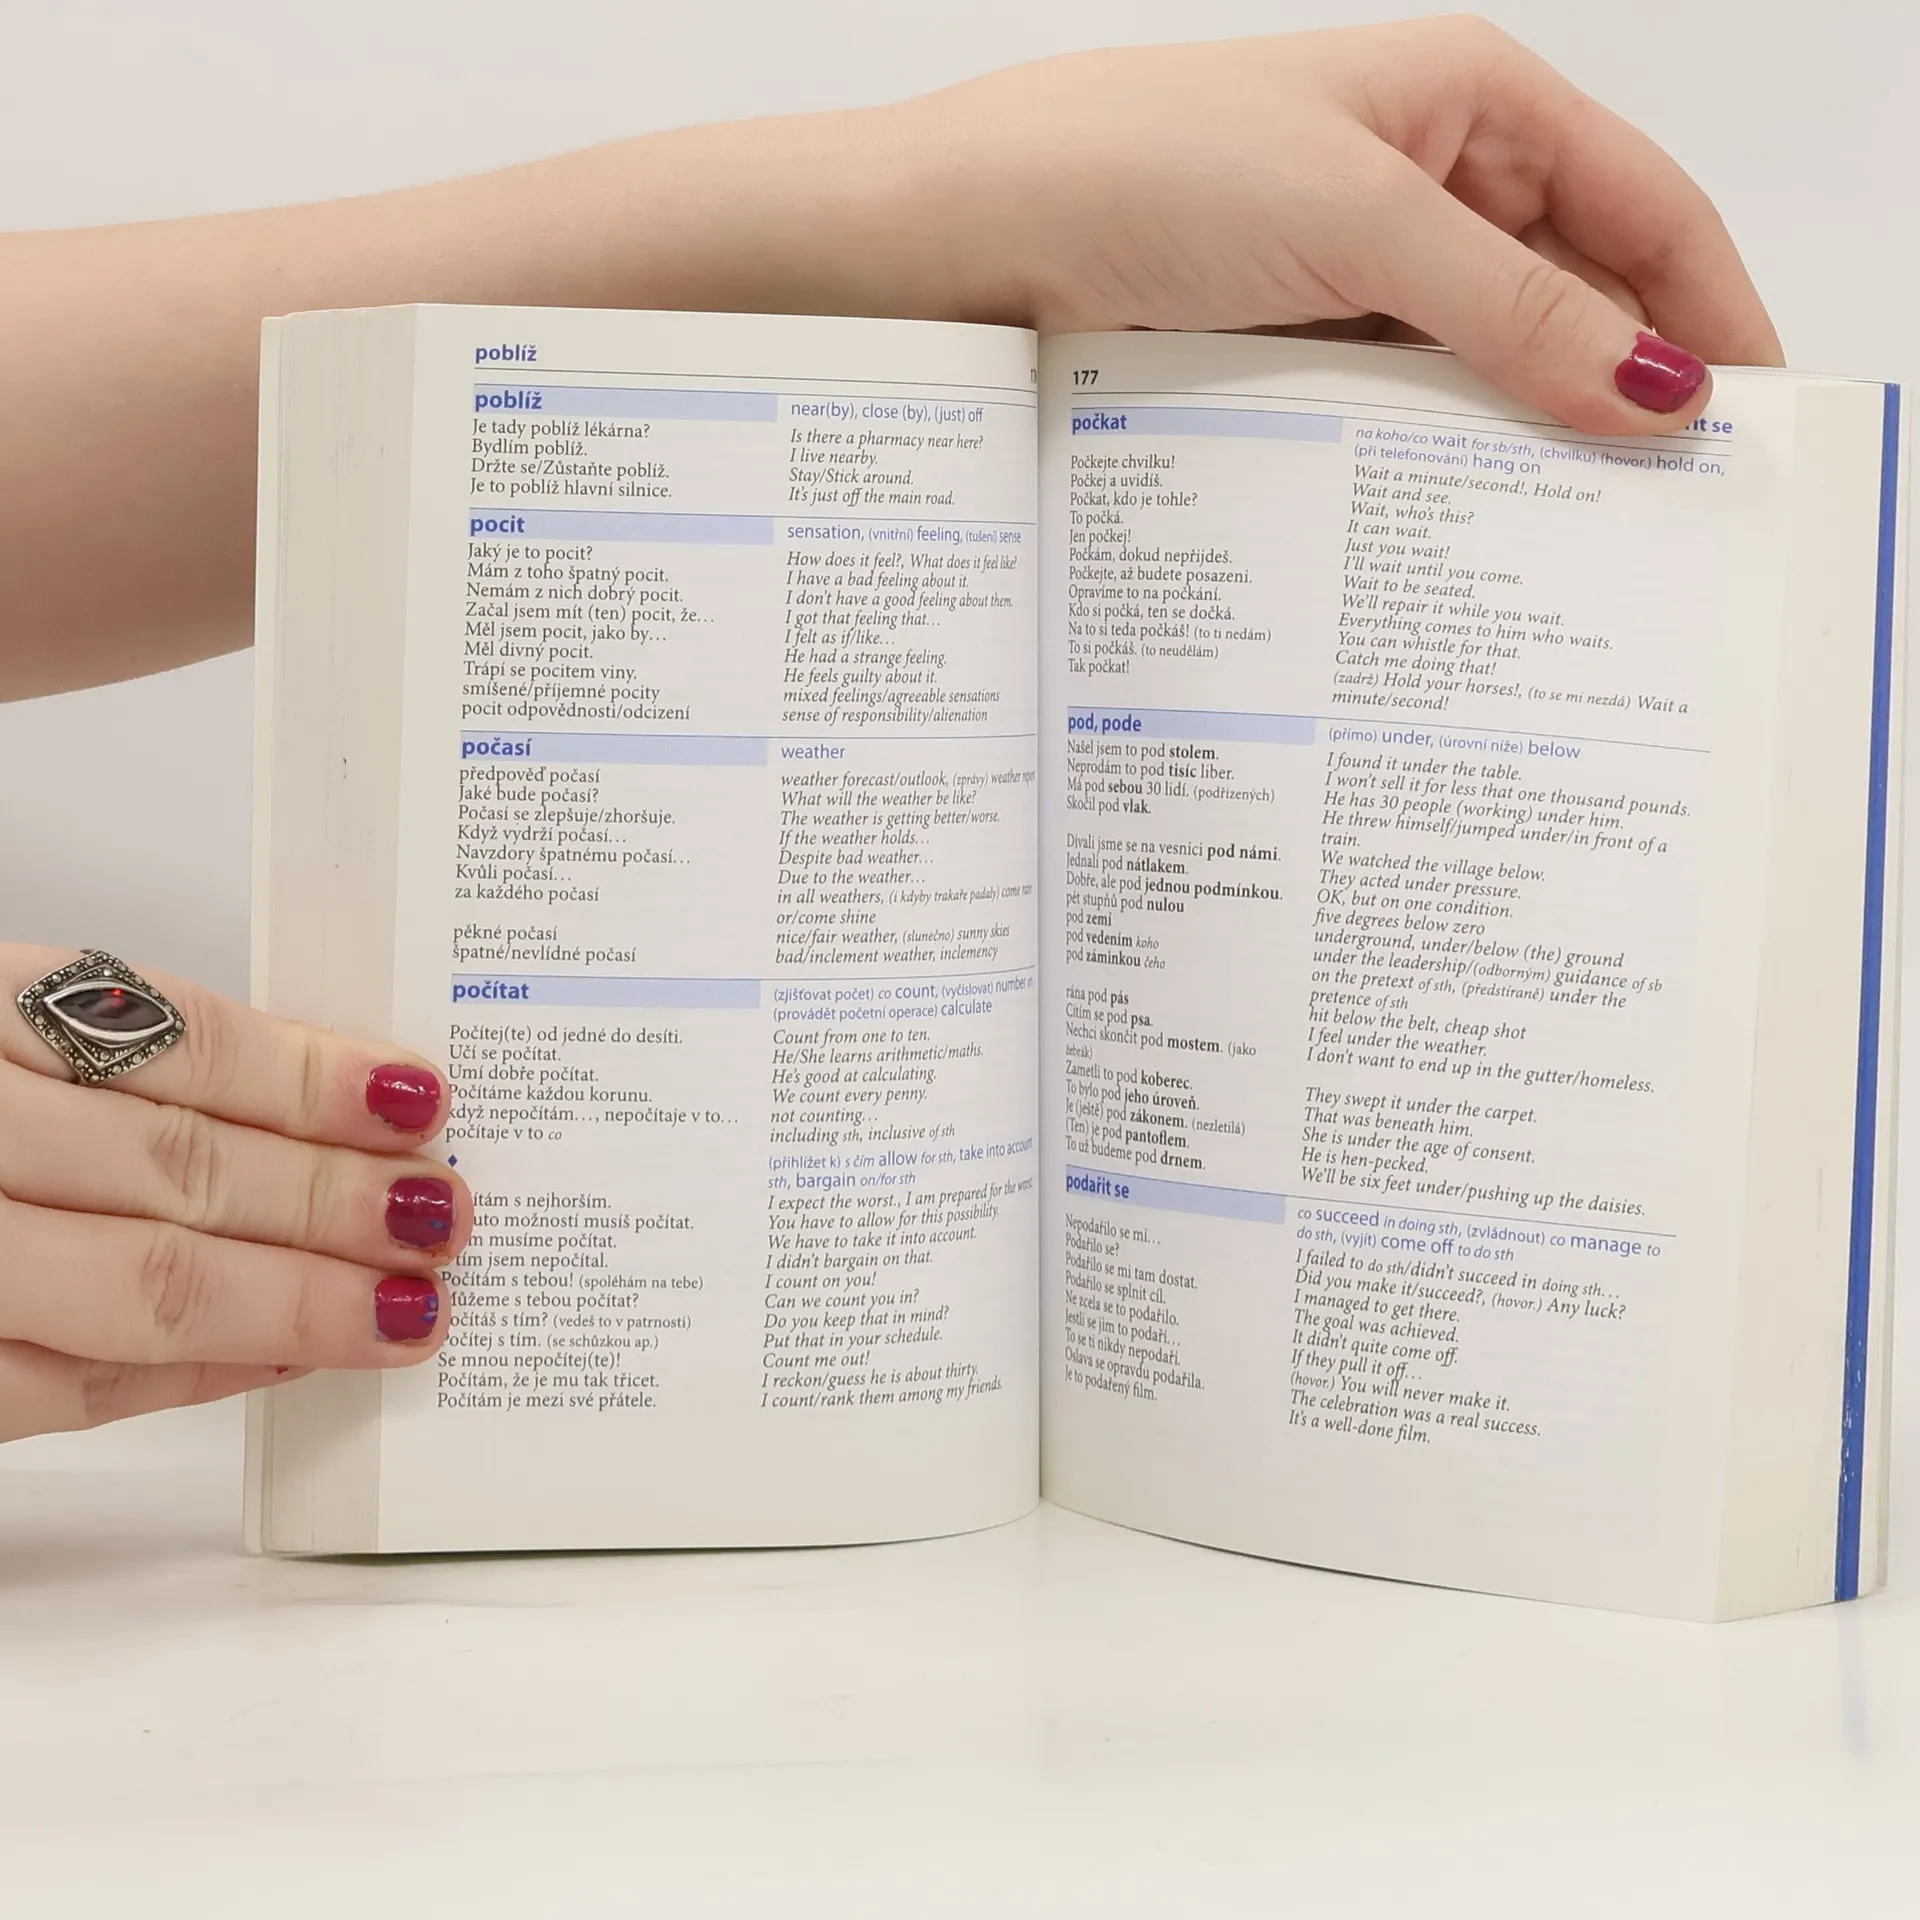 poblíž
poblíž near(by), close (by), (just) off
Je tady poblíž lékárna? Is there a pharmacy near here?
Bydlím poblíž. I live nearby.
Držte se/Zůstaňte poblíž. Stay/Stick around.
Je to poblíž hlavní silnice. It's just off the main road.
pocit sensation, (vnitřní) feeling, (tušení) sense
Jaký je to pocit? How does it feel?, What does it feel like?
Mám z toho špatný pocit. I have a bad feeling about it.
Nemám z nich dobrý pocit. I don't have a good feeling about them.
Začal jsem mít (ten) pocit, že… I got that feeling that…
Měl jsem pocit, jako by… I felt as if/like…
Měl divný pocit. He had a strange feeling.
Trápí se pocitem viny. He feels guilty about it.
smíšené/příjemné pocity mixed feelings/agreeable sensations
pocit odpovědnosti/odcizení sense of responsibility/alienation
počasí weather
předpověď počasí weather forecast/outlook, (zprávy) weather report
Jaké bude počasí? What will the weather be like?
Počasí se zlepšuje/zhoršuje. The weather is getting better/worse.
Když vydrží počasí… If the weather holds…
Navzdory špatnému počasí… Despite bad weather…
Kvůli počasí… Due to the weather…
za každého počasí in all weathers, (i kdyby trakaře padaly) come rain
or/come shine
pěkné počasí nice/fair weather, (slunečno) sunny skies
špatné/nevlídné počasí bad/inclement weather, inclemency
počítat (zjišťovat počet) co count, (vyčíslovat) number
(provádět početní operace) calculate
Počítej(te) od jedné do desíti. Count from one to ten.
Učí se počítat. He/She learns arithmetic/maths.
Umí dobře počítat. He's good at calculating.
Počítáme každou korunu. We count every penny.
když nepočítám…, nepočítaje v to… not counting…
počítaje v to co including sth, inclusive of sth
♦ (přihlížet k) s čím allow for sth, take into account
sth, bargain on/for sth
ítám s nejhorším. I expect the worst., I am prepared for the worst.
uto možností musíš počítat. You have to allow for this possibility.
m musíme počítat. We have to take it into account.
tím jsem nepočítal. I didn't bargain on that.
Počítám s tebou! (spoléhám na tebe) I count on you!
Můžeme s tebou počítat? Can we count you in?
očítáš s tím? (vedeš to v patrnosti) Do you keep that in mind?
Počítej s tím. (se schůzkou ap.) Put that in your schedule.
Se mnou nepočítej(te)! Count me out!
Počítám, že je mu tak třicet. I reckon/guess he is about thirty.
Počítám je mezi své přátele. I count/rank them among my friends.
177 it se
počkat na koho/co wait for sb/sth, (chvilku) (hovor.) hold on,
(při telefonování) hang on
Počkejte chvilku! Wait a minute/second!, Hold on!
Počkej a uvidíš. Wait and see.
Počkat, kdo je tohle? Wait, who's this?
To počká. It can wait.
Jen počkej! Just you wait!
Počkám, dokud nepřijdeš. I'll wait until you come.
Počkejte, až budete posazeni. Wait to be seated.
Opravíme to na počkání. We'll repair it while you wait.
Kdo si počká, ten se dočká. Everything comes to him who waits.
Na to si teda počkáš! (to ti nedám) You can whistle for that.
To si počkáš. (to neudělám) Catch me doing that!
Tak počkat! (zadrž) Hold your horses!, (to se mi nezdá) Wait a
minute/second!
pod, pode (přímo) under, (úrovní níže) below
Našel jsem to pod stolem. I found it under the table.
Neprodám to pod tisíc liber. I won't sell it for less that one thousand pounds.
Má pod sebou 30 lidí. (podřízených) He has 30 people (working) under him.
Skočil pod vlak. He threw himself/jumped under/in front of a
train.
Dívali jsme se na vesnici pod námi. We watched the village below.
Jednali pod nátlakem. They acted under pressure.
Dobře, ale pod jednou podmínkou. OK, but on one condition.
pět stupňů pod nulou five degrees below zero
pod zemí underground, under/below (the) ground
pod vedením koho under the leadership/(odborným) guidance of sb
pod záminkou čeho on the pretext of sth, (předstíraně) under the
pretence of sth
rána pod pás hit below the belt, cheap shot
Cítím se pod psa. I feel under the weather.
Nechci skončit pod mostem. (jako I don't want to end up in the gutter/homeless.
žebrák)
Zametli to pod koberec. They swept it under the carpet.
To bylo pod jeho úroveň. That was beneath him.
Je (ještě) pod zákonem. (nezletilá) She is under the age of consent.
(Ten) je pod pantoflem. He is hen-pecked.
To už budeme pod drnem. We'll be six feet under/pushing up the daisies.
podařit se co succeed in doing sth, (zvládnout) co manage to
do sth, (vyjít) come off to do sth
Nepodařilo se mi… I failed to do sth/didn't succeed in doing sth…
Podařilo se? Did you make it/succeed?, (hovor.) Any luck?
Podařilo se mi tam dostat. I managed to get there.
Podařilo se splnit cíl. The goal was achieved.
Ne zcela se to podařilo. It didn't quite come off.
Jestli se jim to podaří… If they pull it off…
To se ti nikdy nepodaří. (hovor.) You will never make it.
Oslava se opravdu podařila. The celebration was a real success.
Je to podařený film. It's a well-done film.